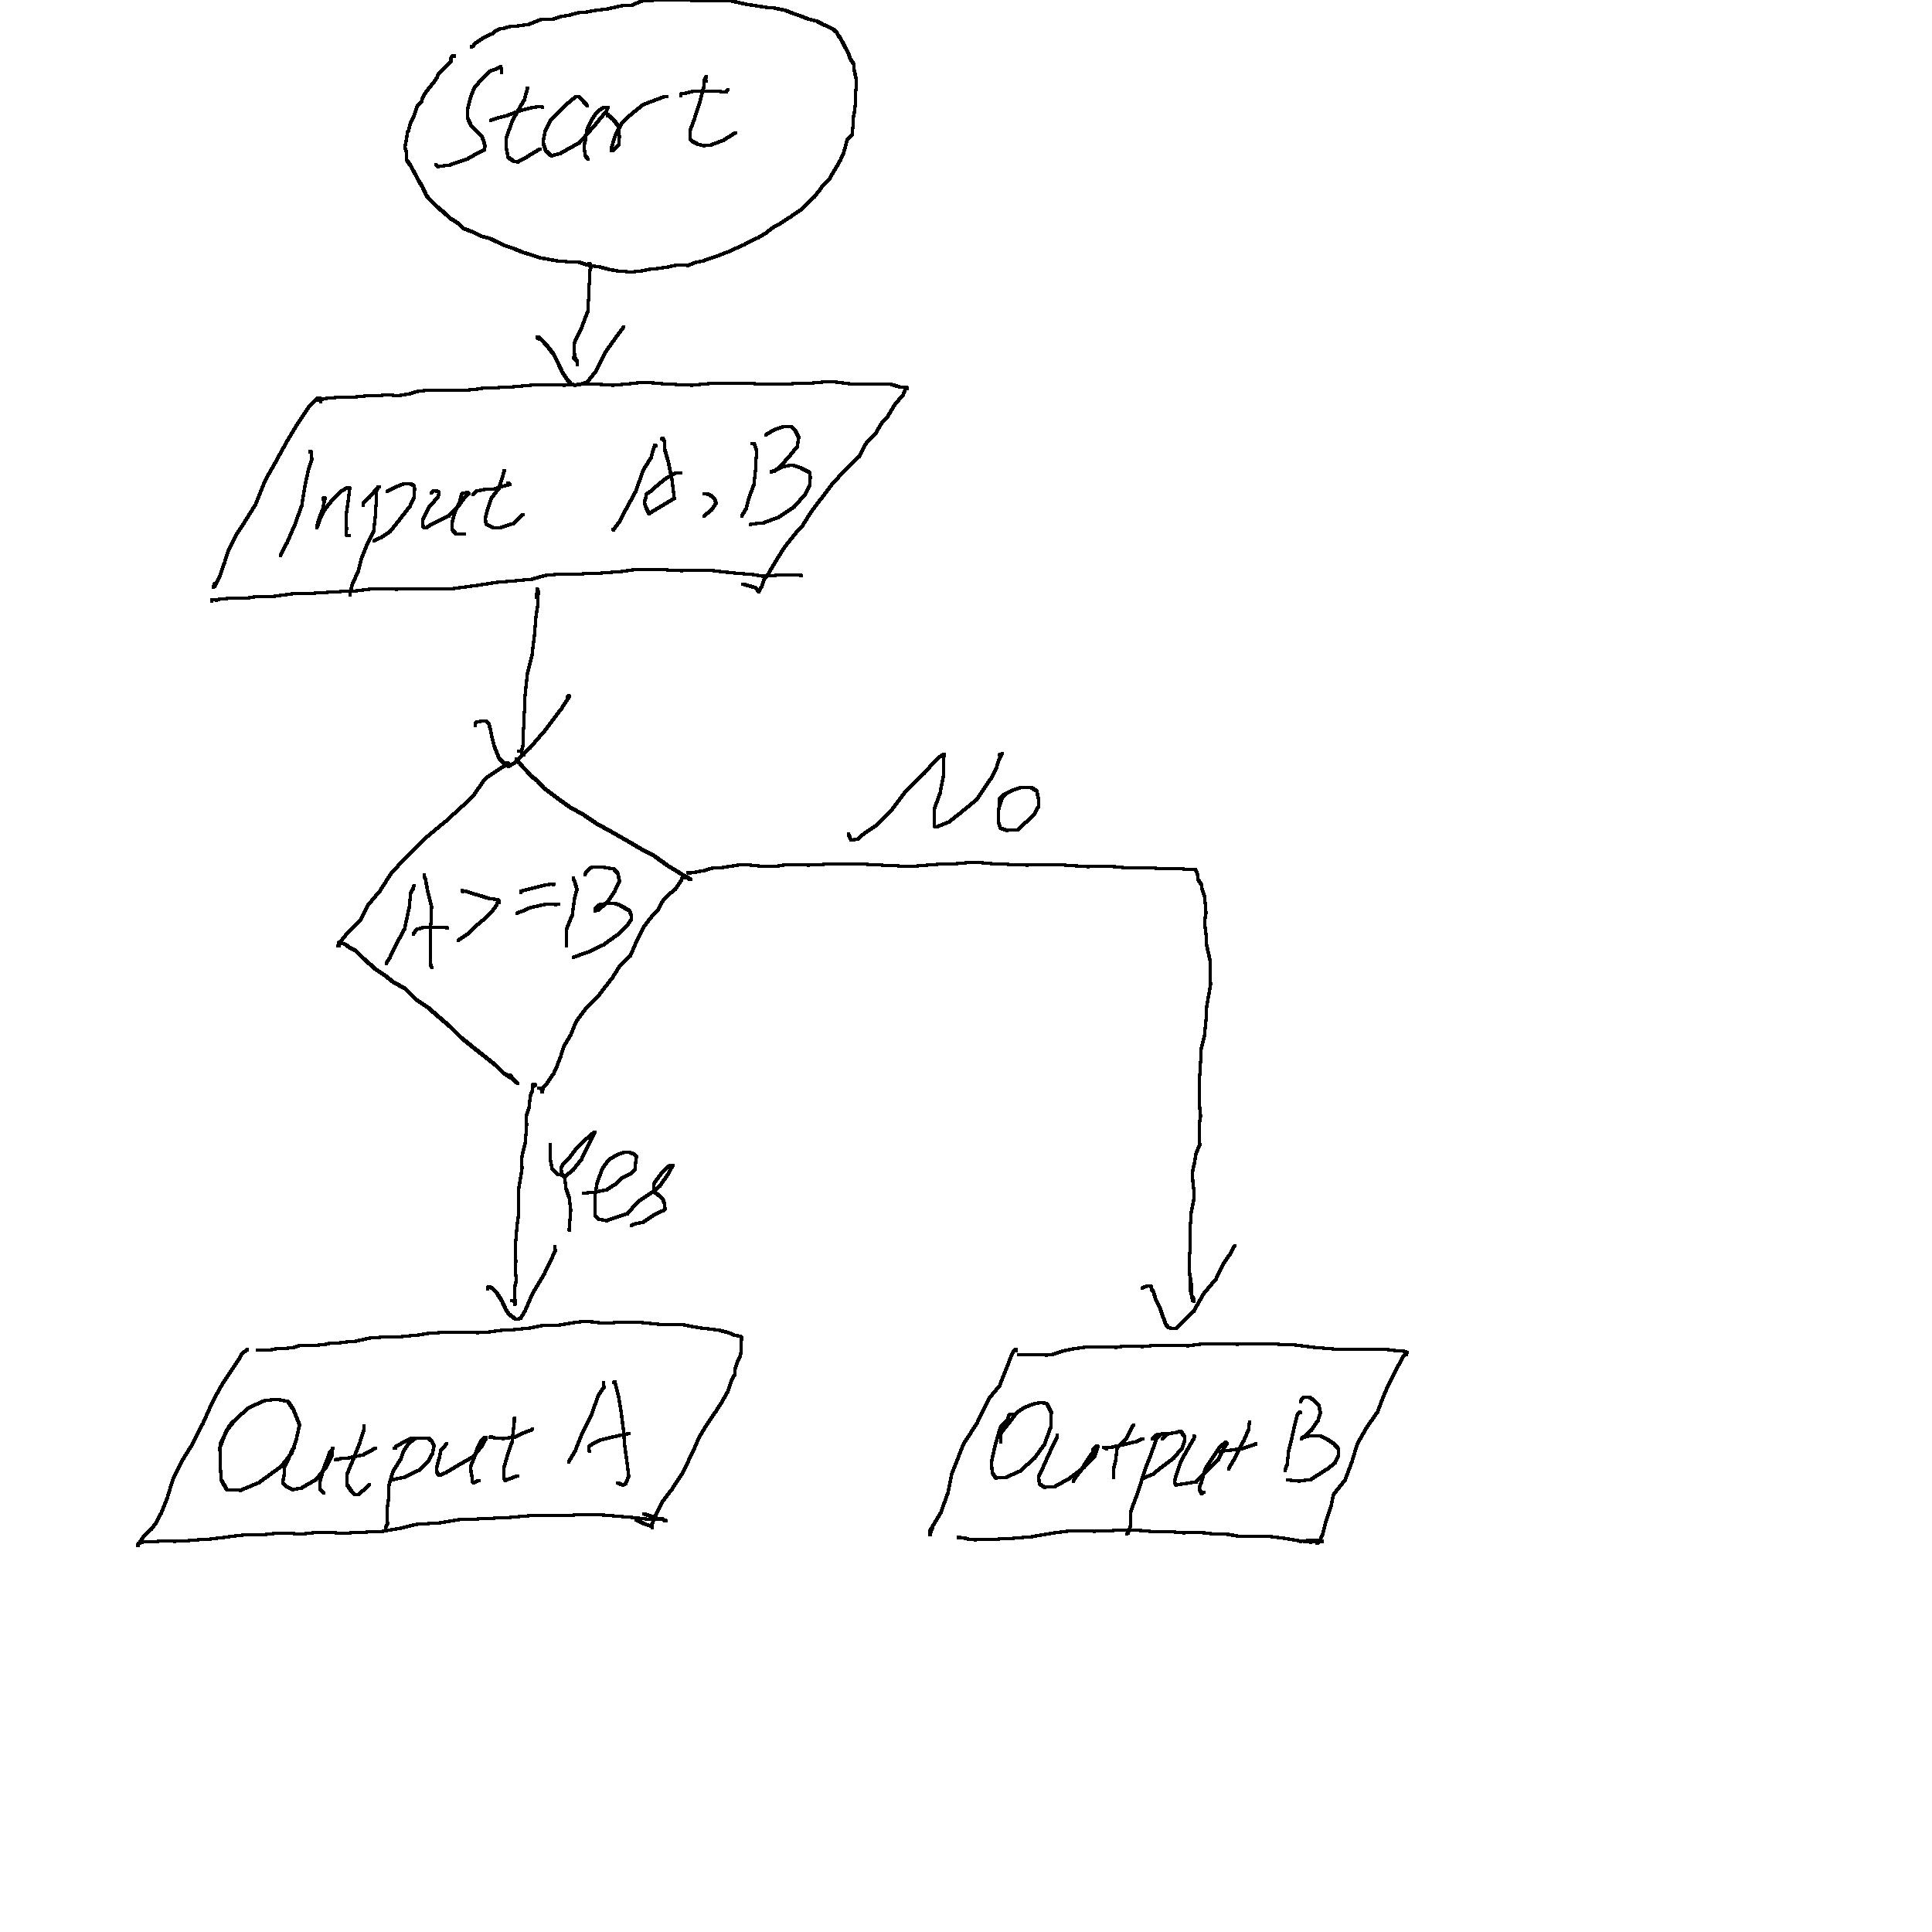 Start
Input A,B
No
A>=B
Yes
Output A
Output B